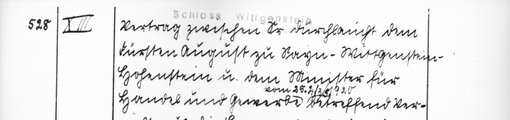 Schloss Wittgenstein
528 X III Vertrag zwischen Sr Durchlaucht dem
Fürsten August zu Sayn-Wittgenstein-
Hohenstein u. dem Minister für
vom 25.2/ 1920
Handel und Gewerbe betreffend Ver-